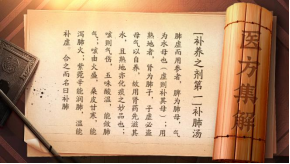 补养之剂第一｜补肺汤
肺虚而用参者，脾为肺母，气
为水母也（虚则补其母）；用
熟地者，肾为肺子，子虚必盗
母气以自养，故用肾药先滋其
水，且熟地亦化痰之妙品也；
咳则气伤，五味酸温，能敛肺
气；咳由火盛，桑皮甘寒，能
泻肺火；紫菀辛能润肺，温能
补虚。合之而名曰补肺
医方集解